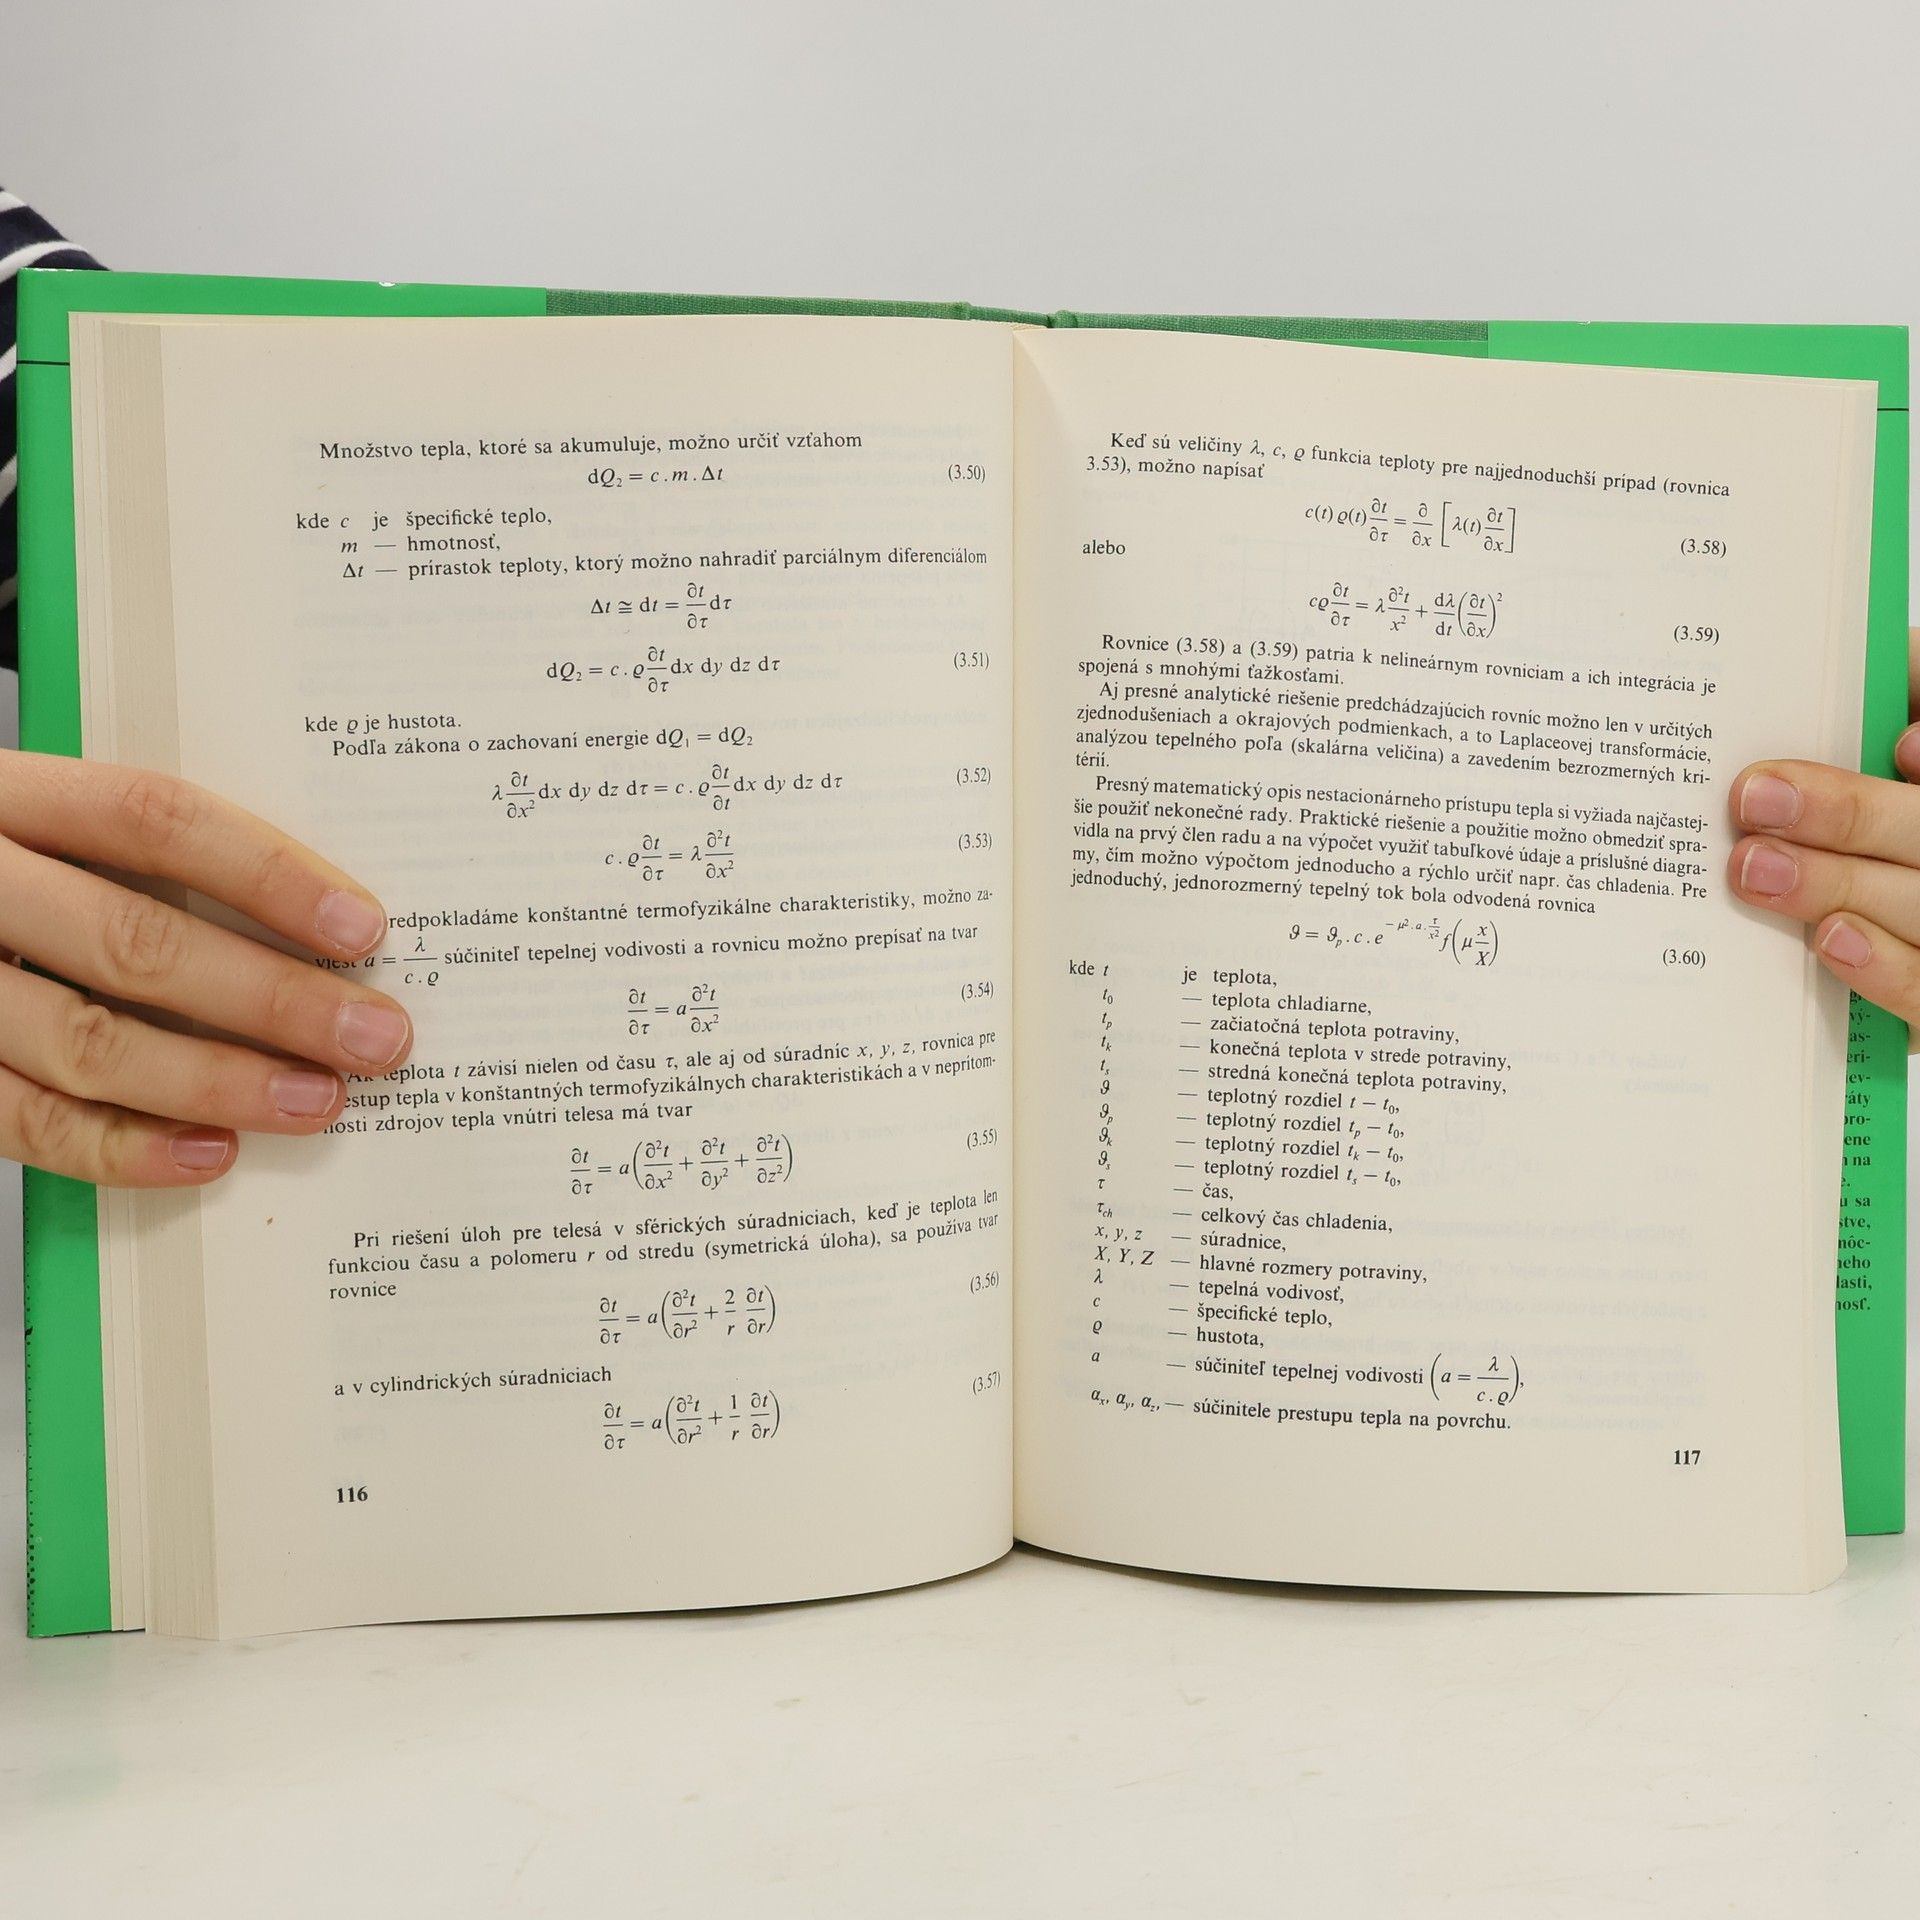 Množstvo tepla, ktoré sa akumuluje, možno určiť vzťahom
dQ₂ = c . m . Δt (3.50)
kde c je špecifické teplo,
m — hmotnosť,
Δt — prírastok teploty, ktorý možno nahradiť parciálnym diferenciálom
Δt ≅ dt = ∂t/∂τ dτ
dQ₂ = c . ϱ ∂t/∂τ dx dy dz dτ (3.51)
kde ϱ je hustota.
Podľa zákona o zachovaní energie dQ₁ = dQ₂
λ ∂t/∂x² dx dy dz dτ = c . ϱ ∂t/∂t dx dy dz dτ (3.52)
c . ϱ ∂t/∂τ = λ ∂²t/∂x² (3.53)
redpokladáme konštantné termofyzikálne charakteristiky, možno za-
a = λ/c . ϱ súčiniteľ tepelnej vodivosti a rovnicu možno prepísať na tvar
∂t/∂τ = a ∂²t/∂x² (3.54)
teplota t závisí nielen od času τ, ale aj od súradníc x, y, z, rovnica pre
estup tepla v konštantných termofyzikálnych charakteristikách a v neprítom-
nosti zdrojov tepla vnútri telesa má tvar
∂t/∂τ = a(∂²t/∂x² + ∂²t/∂y² + ∂²t/∂z²) (3.55)
Pri riešení úloh pre telesá v sférických súradniciach, keď je teplota len
funkciou času a polomeru r od stredu (symetrická úloha), sa používa tvar
rovnice
∂t/∂τ = a(∂²t/∂r² + 2/r ∂t/∂r) (3.56)
a v cylindrických súradniciach
∂t/∂τ = a(∂²t/∂r² + 1/r ∂t/∂r) (3.57)
116
Keď sú veličiny λ, c, ϱ funkcia teploty pre najjednoduchší prípad (rovnica
3.53), možno napísať
c(t) ϱ(t) ∂t/∂τ = ∂/∂x [λ(t) ∂t/∂x] (3.58)
alebo
cϱ ∂t/∂τ = λ ∂²t/x² + dλ/dt (∂t/∂x)² (3.59)
Rovnice (3.58) a (3.59) patria k nelineárnym rovniciam a ich integrácia je
spojená s mnohými ťažkosťami.
Aj presné analytické riešenie predchádzajúcich rovníc možno len v určitých
zjednodušeniach a okrajových podmienkach, a to Laplaceovej transformácie,
analýzou tepelného poľa (skalárna veličina) a zavedením bezrozmerných kri-
térií.
Presný matematický opis nestacionárneho prístupu tepla si vyžiada najčastej-
šie použiť nekonečné rady. Praktické riešenie a použitie možno obmedziť spra-
vidla na prvý člen radu a na výpočet využiť tabuľkové údaje a príslušné diagra-
my, čím možno výpočtom jednoducho a rýchlo určiť napr. čas chladenia. Pre
jednoduchý, jednorozmerný tepelný tok bola odvodená rovnica
ϑ = ϑₚ . c . e^(−μ² . a . τ/x²) f(μ x/X) (3.60)
kde t je teplota,
t₀ — teplota chladiarne,
tₚ — začiatočná teplota potraviny,
tₖ — konečná teplota v strede potraviny,
tₛ — stredná konečná teplota potraviny,
ϑ — teplotný rozdiel t − t₀,
ϑₚ — teplotný rozdiel tₚ − t₀,
ϑₖ — teplotný rozdiel tₖ − t₀,
ϑₛ — teplotný rozdiel tₛ − t₀,
τ — čas,
τ_ch — celkový čas chladenia,
x, y, z — súradnice,
X, Y, Z — hlavné rozmery potraviny,
λ — tepelná vodivosť,
c — špecifické teplo,
ϱ — hustota,
a — súčiniteľ tepelnej vodivosti (a = λ/c . ϱ),
αₓ, α_y, α_z, — súčinitele prestupu tepla na povrchu.
117